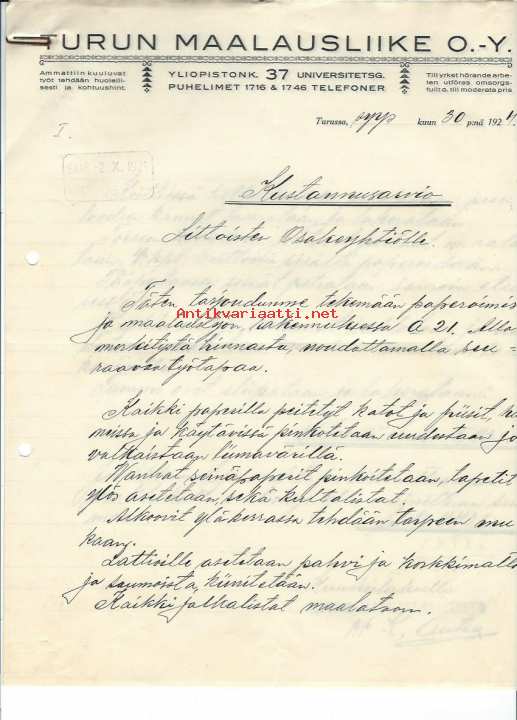 TURUN MAALAUSLIIKE O.-Y.
Ammattiin kuuluvat
työt tehdään huolelli-
sesti ja kohtuushint.
YLIOPISTONK. 37 UNIVERSITETSG.
PUHELIMET 1716 & 1746 TELEFONER
Till yrket hörande arbe-
ten utföras omsorgs-
fullt o. till moderata pris
Turussa, syys kuun 30 p:nä 192
I.
Kustannusarvio
Littoisten Osakeyhtiölle.
Antikvariaatti.net
Täten tarjoudumme tekemään paperoimis
ja maalaustyön, rakennuksessa A 21. Alla
merkitystä hinnasta, noudattamalla seu-
raavaa työtapaa.
Kaikki paperilla peitetyt katot ja piisit,
ja käytävissä pinkotetaan uudestaan ja
valkaistaan liimavärillä.
Wanhat seinäpaperit pinkoitetaan, tapetit
ylös asetetaan, sekä kultalistat.
Alkoovit yläkerrassa tehdään tarpeen mu
kaan.
Lattioille asetetaan pahvi ja korkkimatto
ja saumoista, kiinnitetään.
Kaikki jalkalistat maalataan.